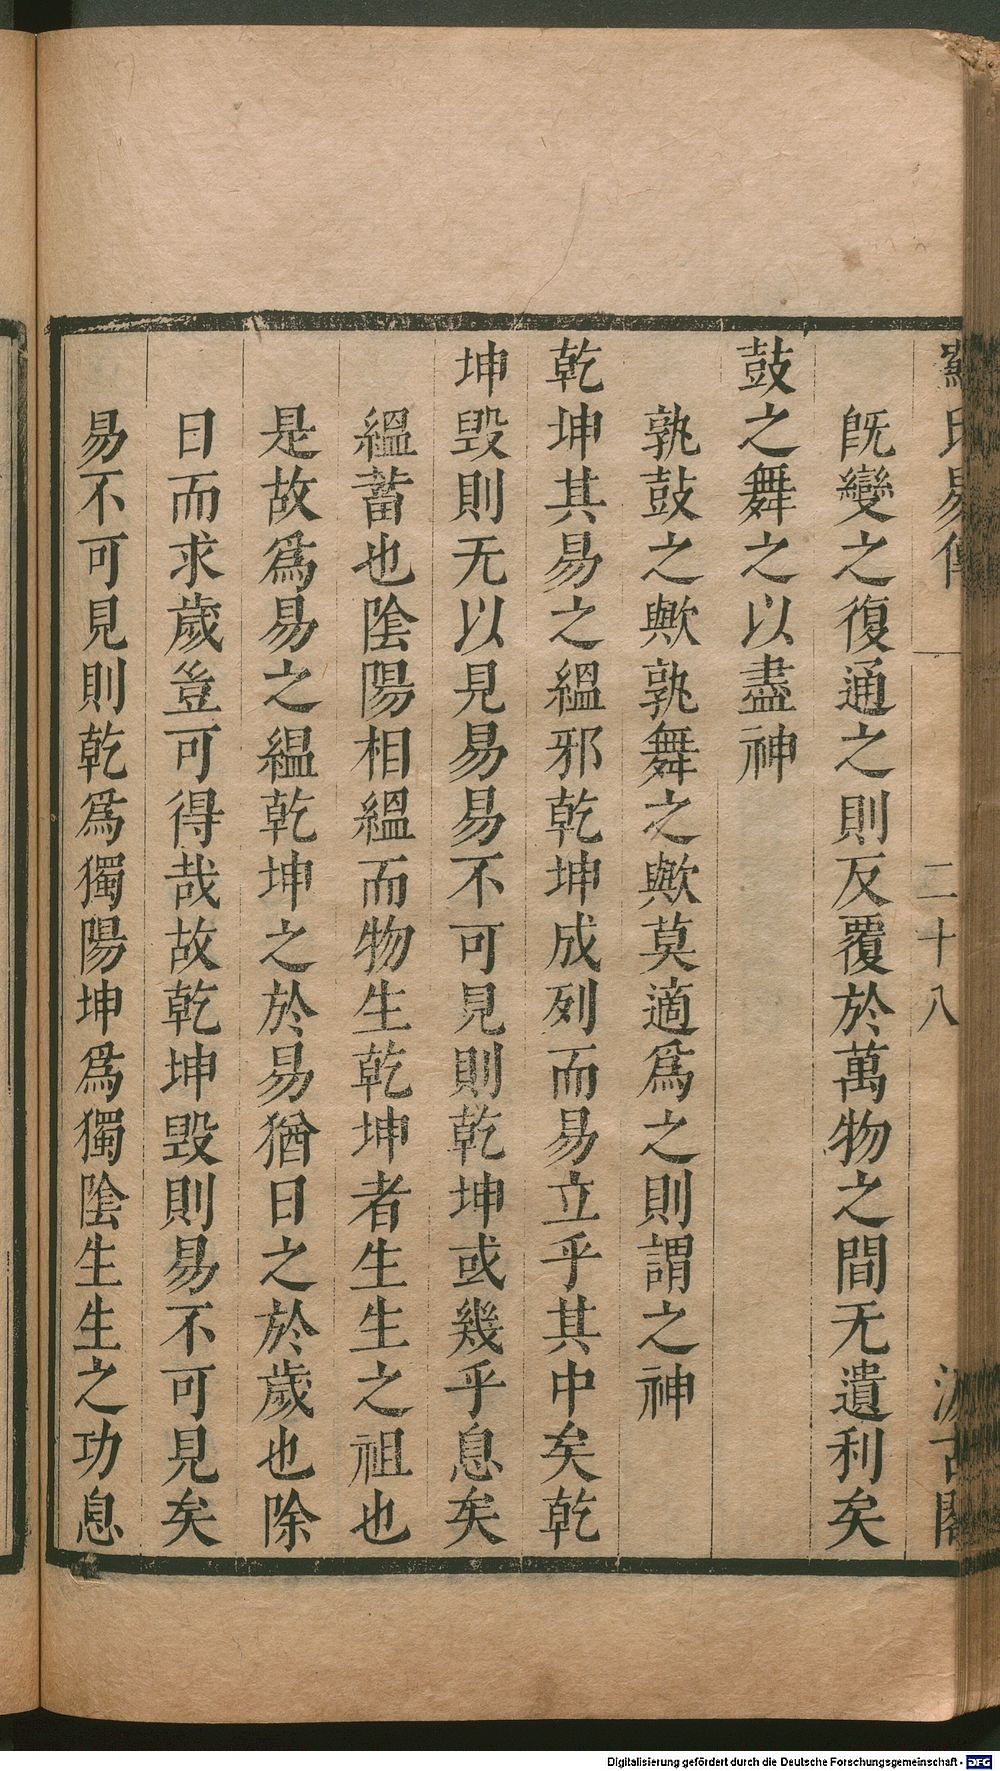 蘇氏易傳 二十八 汲古閣
旣變之復通之則反覆於萬物之間无遺利矣
鼓之舞之以盡神
孰鼓之歟孰舞之歟莫適爲之則謂之神
乾坤其易之緼邪乾坤成列而易立乎其中矣乾
坤毀則无以見易易不可見則乾坤或幾乎息矣
緼蓄也陰陽相緼而物生乾坤者生生之祖也
是故爲易之緼乾坤之於易猶日之於歲也除
日而求歲豈可得哉故乾坤毀則易不可見矣
易不可見則乾爲獨陽坤爲獨陰生生之功息
Digitalisierung gefördert durch die Deutsche Forschungsgemeinschaft - DFG